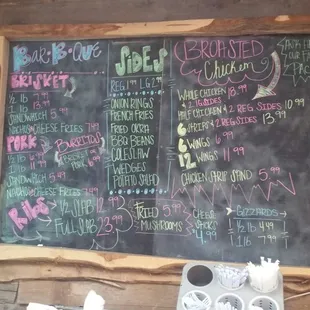 Bar-B-Que
BRISKET
1/2 lb
1 lb 13.99
SANDWICH 5.99
NACHOS/CHEESE FRIES 7.99
PORK
1/2 lb 6.99
1 lb
SANDWICH 5.99
NACHOS/CHEESE FRIES
Ribs
1/2 SLAB 12.99
FULL SLAB 23.99
BURRITOS
SIDES
REG 1.99 LG 2.99
ONION RINGS
FRENCH FRIES
FRIED OKRA
BBQ BEANS
COLESLAW
WEDGES
POTATO SALAD
FRIED 5.99
MUSHROOMS
(BROASTED
Chicken)
WHOLE CHICKEN 18.99
& 2 LG SIDES
HALF CHICKEN & 2 REG SIDES 10.99
6 STRIPS & 2 REG SIDES 13.99
6 WINGS 6.99
12 WINGS 11.99
CHICKEN STRIP SAND 5.99
CHEESE
STICKS
4.99
GIZZARDS
1/2 lb 4.99
1 lb 7.99